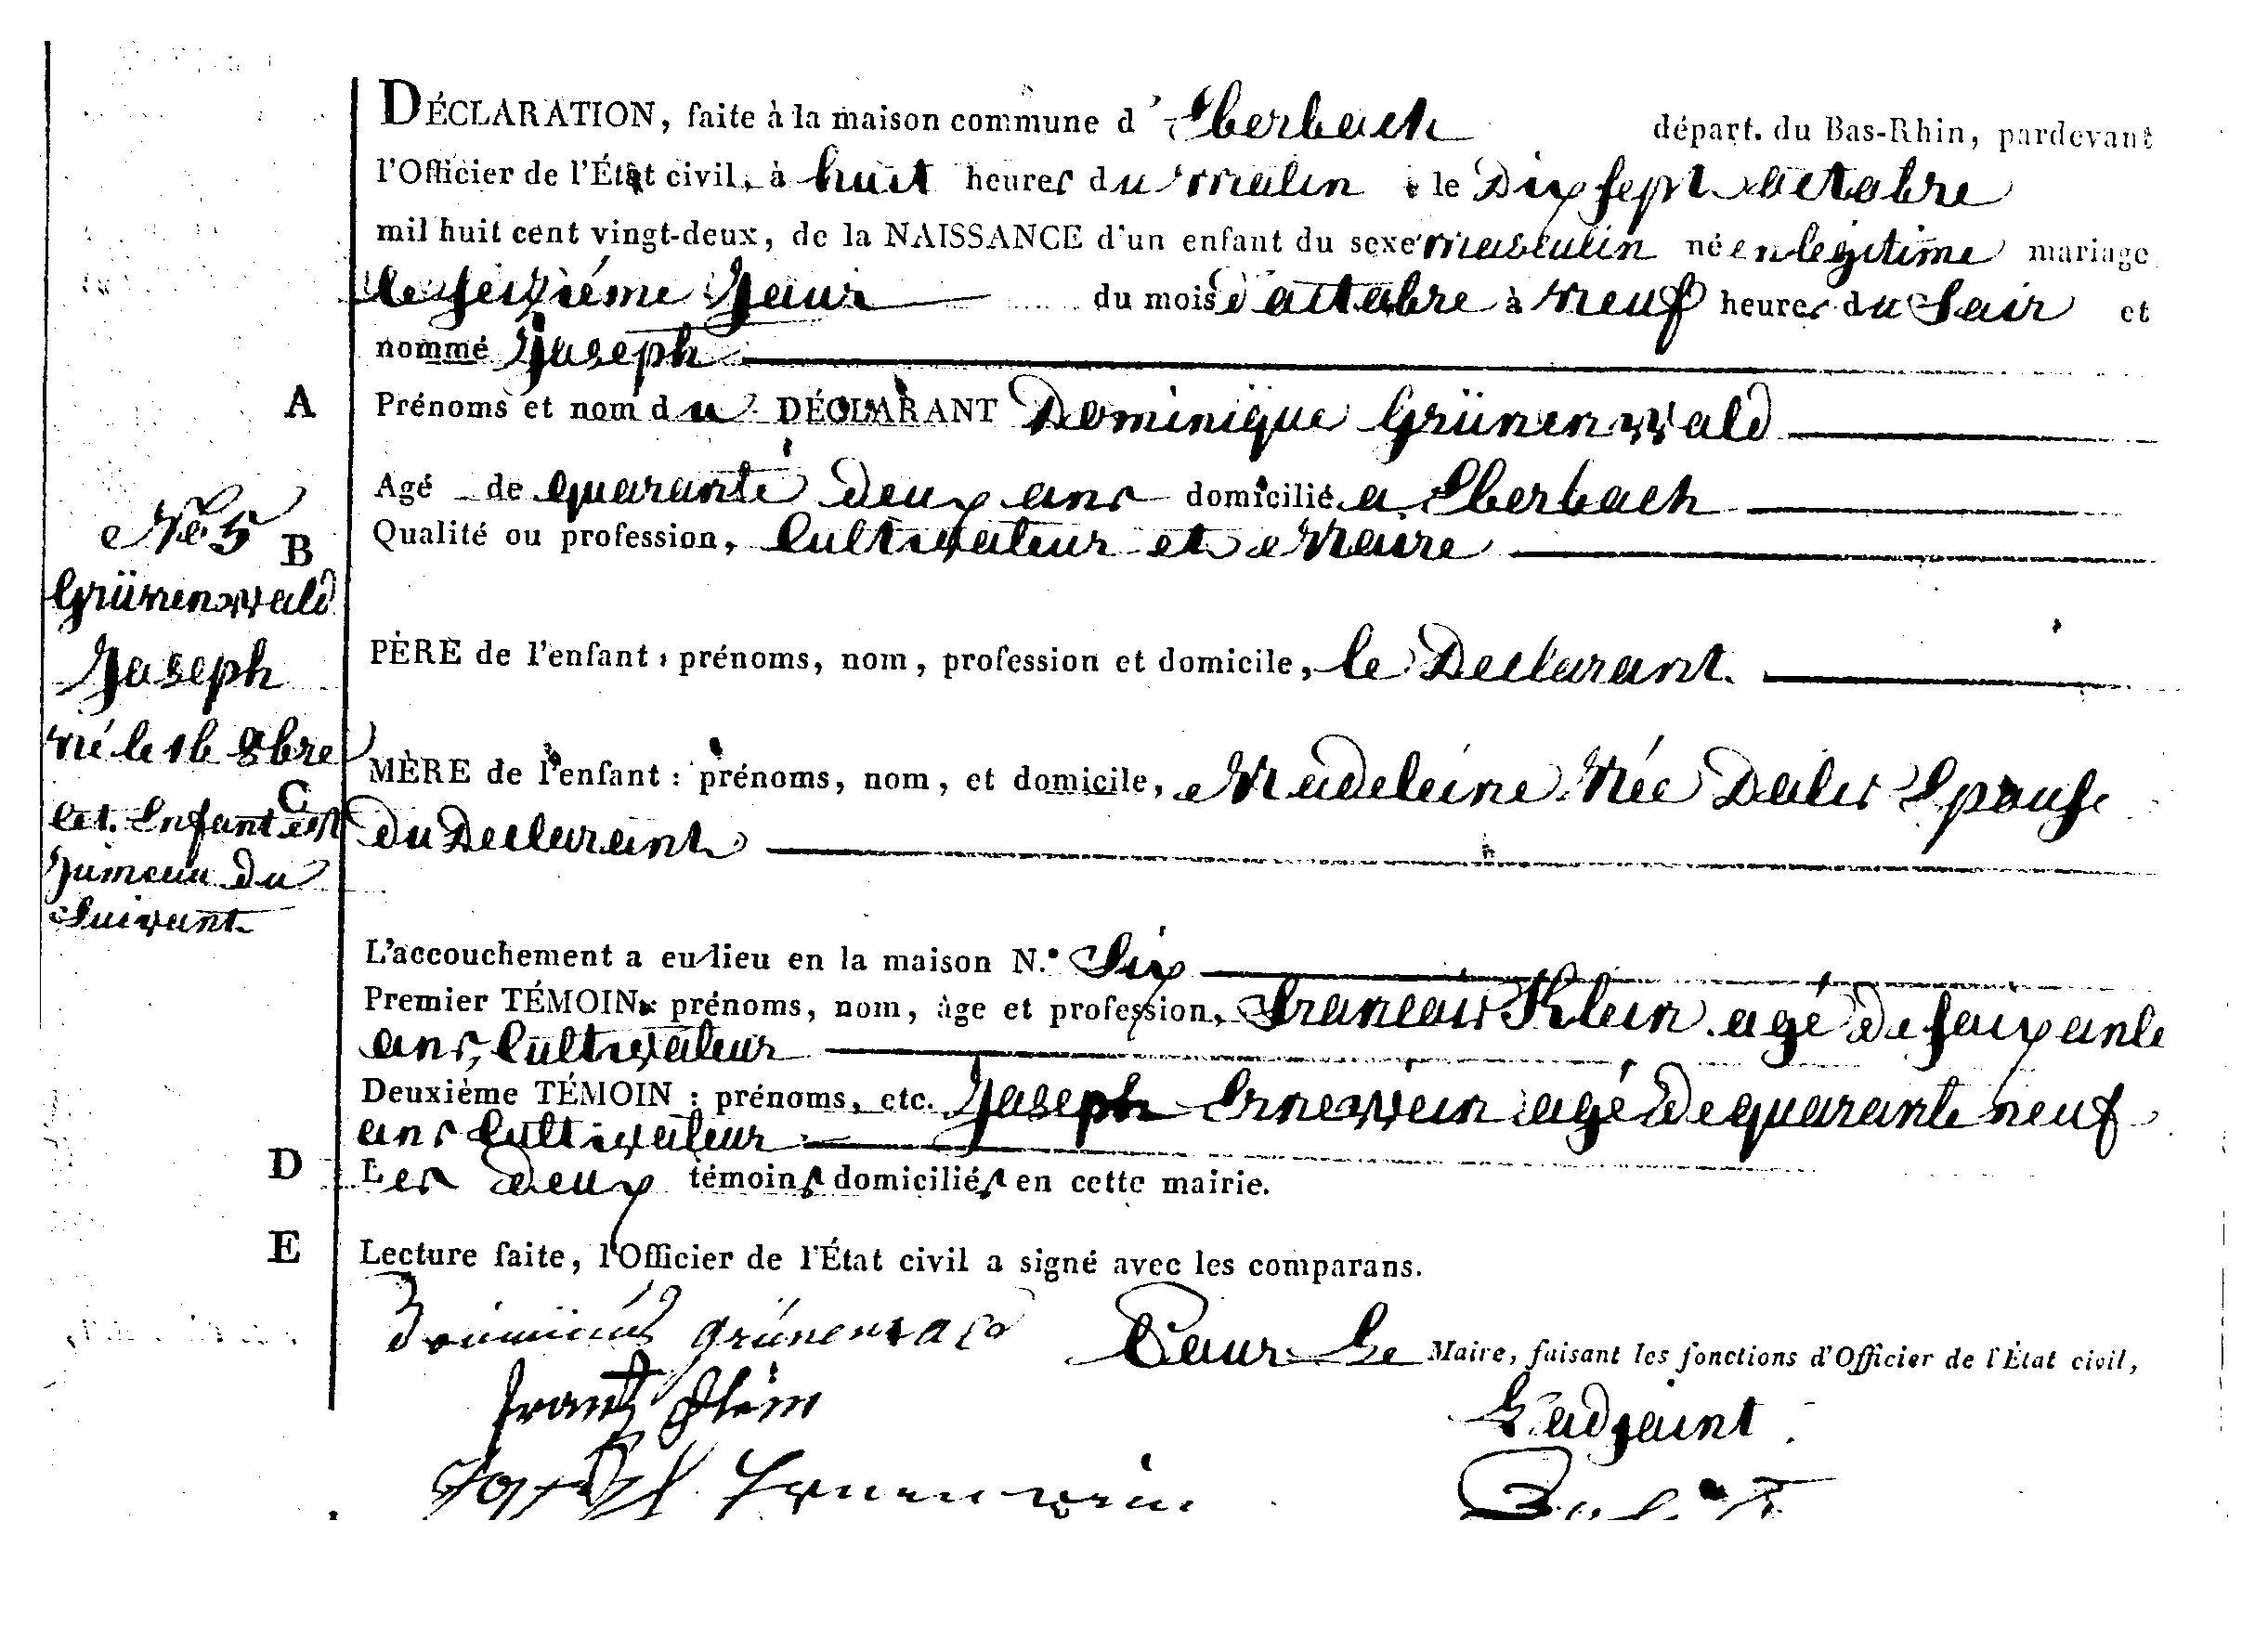 DÉCLARATION, faite à la maison commune d' Eberbach départ. du Bas-Rhin, pardevant
l'Officier de l'État civil, à huit heures du matin le Dix sept octobre
mil huit cent vingt-deux, de la NAISSANCE d'un enfant du sexe masculin né en legitime mariage
le seizième Jour du mois d'octobre à neuf heures du Soir et
nommé Joseph
A
Prénoms et nom du DÉCLARANT Dominique Grünenwald
Agé de quarante Deux ans domicilié a Eberbach
B
Qualité ou profession, Cultivateur et Maire
PÈRE de l'enfant : prénoms, nom, profession et domicile, le Declarant.
C
MÈRE de l'enfant : prénoms, nom, et domicile, Madeleine Née Epouse
Du Declarant
L'accouchement a eu lieu en la maison N.° Six
Premier TÉMOIN : prénoms, nom, âge et profession, Francois Klein agé de soixante
ans, Cultivateur
Deuxième TÉMOIN : prénoms, etc. Joseph Ernewein agé De quarante neuf
ans Cultivateur
D
Les Deux témoins domiciliés en cette mairie.
E
Lecture faite, l'Officier de l'État civil a signé avec les comparans.
No 5
Grünenwald
Joseph
né le 16 8bre
Cet Enfant est
Jumeau du
Suivant
grünenwald
Frantz Klein
Pour Le Maire, faisant les fonctions d'Officier de l'État civil,
L'adjoint